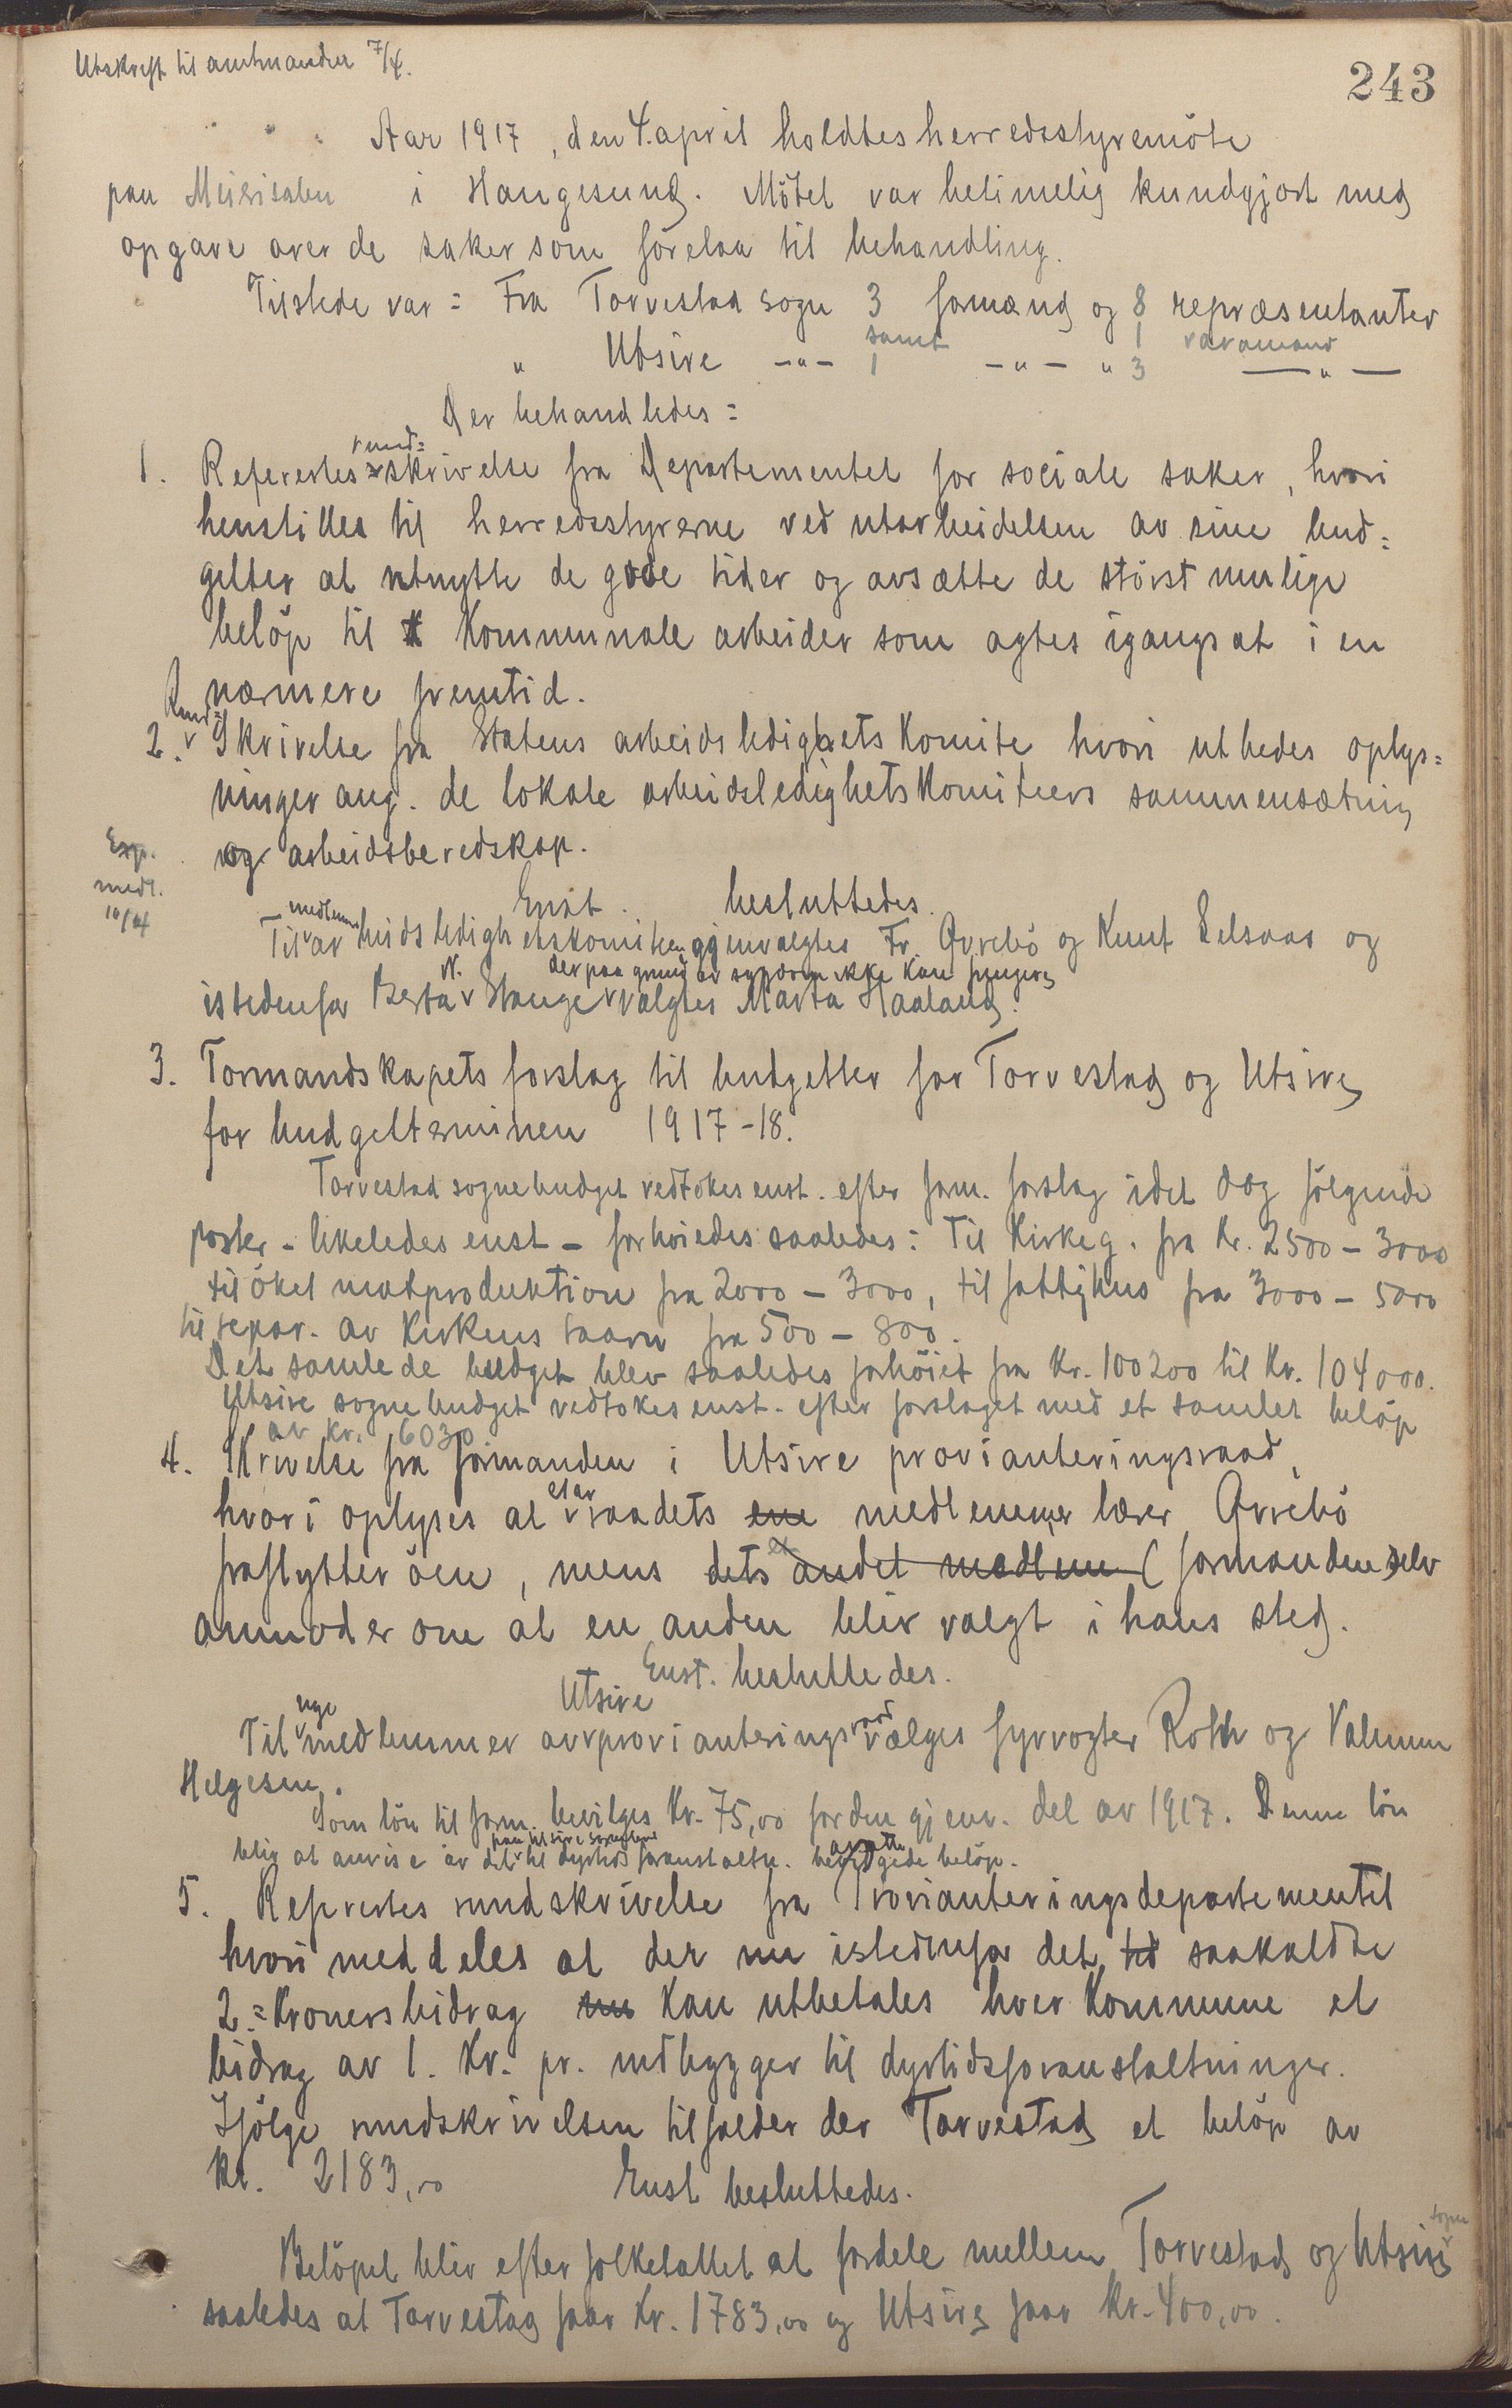 Utskrift til amtmanden 7/4.
243
Aar 1917, den 4. april holdtes herredsstyremöte
paa Meierisalen i Haugesund. Mötet var betimelig kundgjort med
opgave over de saker som forelaa til behandling.
Tilstede var: Fra Torvestad sogn 3 formænd og 8 repræsentanter
samt 1 varamand
" Utsire -"- 1 -"- " 3 -"-
Der behandledes:
1. Referertes rund=skrivelse fra Departementet for sociale saker, hvori
henstilles til herredsstyrerne ved utarbeidelsen av sine bud=
getter at utnytte de gode tider og avsætte de störst mulige
belöp til kommunale arbeider som agtes igangsat i en
nærmere fremtid.
2. Rund=Skrivelse fra Statens arbeidsledighetskomite hvori utbedes oplys=
ninger ang. de lokale arbeidsledighetskomiteers sammensætning
og arbeidsberedskap.
Exp.
medl.
10/4
Enst. besluttedes.
Til medlemmer av arbeidsledighetskomiteen gjenvalgtes Fr. Qvrebö og Knut Selsaas og
istedenfor Berta N. Stange der paa grund av sygdom ikke kan fungere valgtes Marta Haaland.
3. Formandskapets forslag til budgetter for Torvestad og Utsire
for budgetterminen 1917-18.
Torvestad sognebudget vedtokes enst. efter form. forslag idet dog fölgende
poster - likeledes enst - forhöiedes saaledes: Til Kirkeg. fra Kr. 2500 - 3000
til öket matproduktion fra 2000 - 3000, til fattighus fra 3000 - 5000
til repar. av Kirkens taarn fra 500 - 800.
Det samlede budget blev saaledes forhöiet fra Kr. 100200 til Kr. 104000.
Utsire sognebudget vedtokes enst. efter forslaget med et samlet belöp
av Kr. 6030
4. Skrivelse fra formanden i Utsire provianteringsraad,
hvori oplyses at et av raadets ene medlemmer lærer Qvrebö
fraflytter öen, mens dets andet medlem (formanden) selv
anmoder om at en anden blir valgt i hans sted.
Enst. besluttedes.
Til nye medlemmer av Utsire provianteringsraad vælges fyrvogter Roth og Valemon
Helgesen.
Som lön til form. bevilges Kr. 75,00 for den gjenv. del av 1917. Denne lön
blir at anvise av det paa Utsire sognebud til dyrtidsforanstaltn. avsatte belöp.
5. Referertes rundskrivelse fra Provianteringsdepartementet
hvori meddeles at der nu istedenfor det saakaldte
2=Kronersbidrag nu kan utbetales hver Kommune et
bidrag av 1. Kr. pr. indbygger til dyrtidsforanstaltninger.
Ifölge rundskrivelsen tilfalder der Torvestad et belöp av
Kr. 2183,00 Enst besluttedes.
Belöpet blir efter folketallet at fordele mellem Torvestad og Utsire sogne
saaledes at Torvestad faar Kr. 1783,00 og Utsire faar Kr. 400,00.